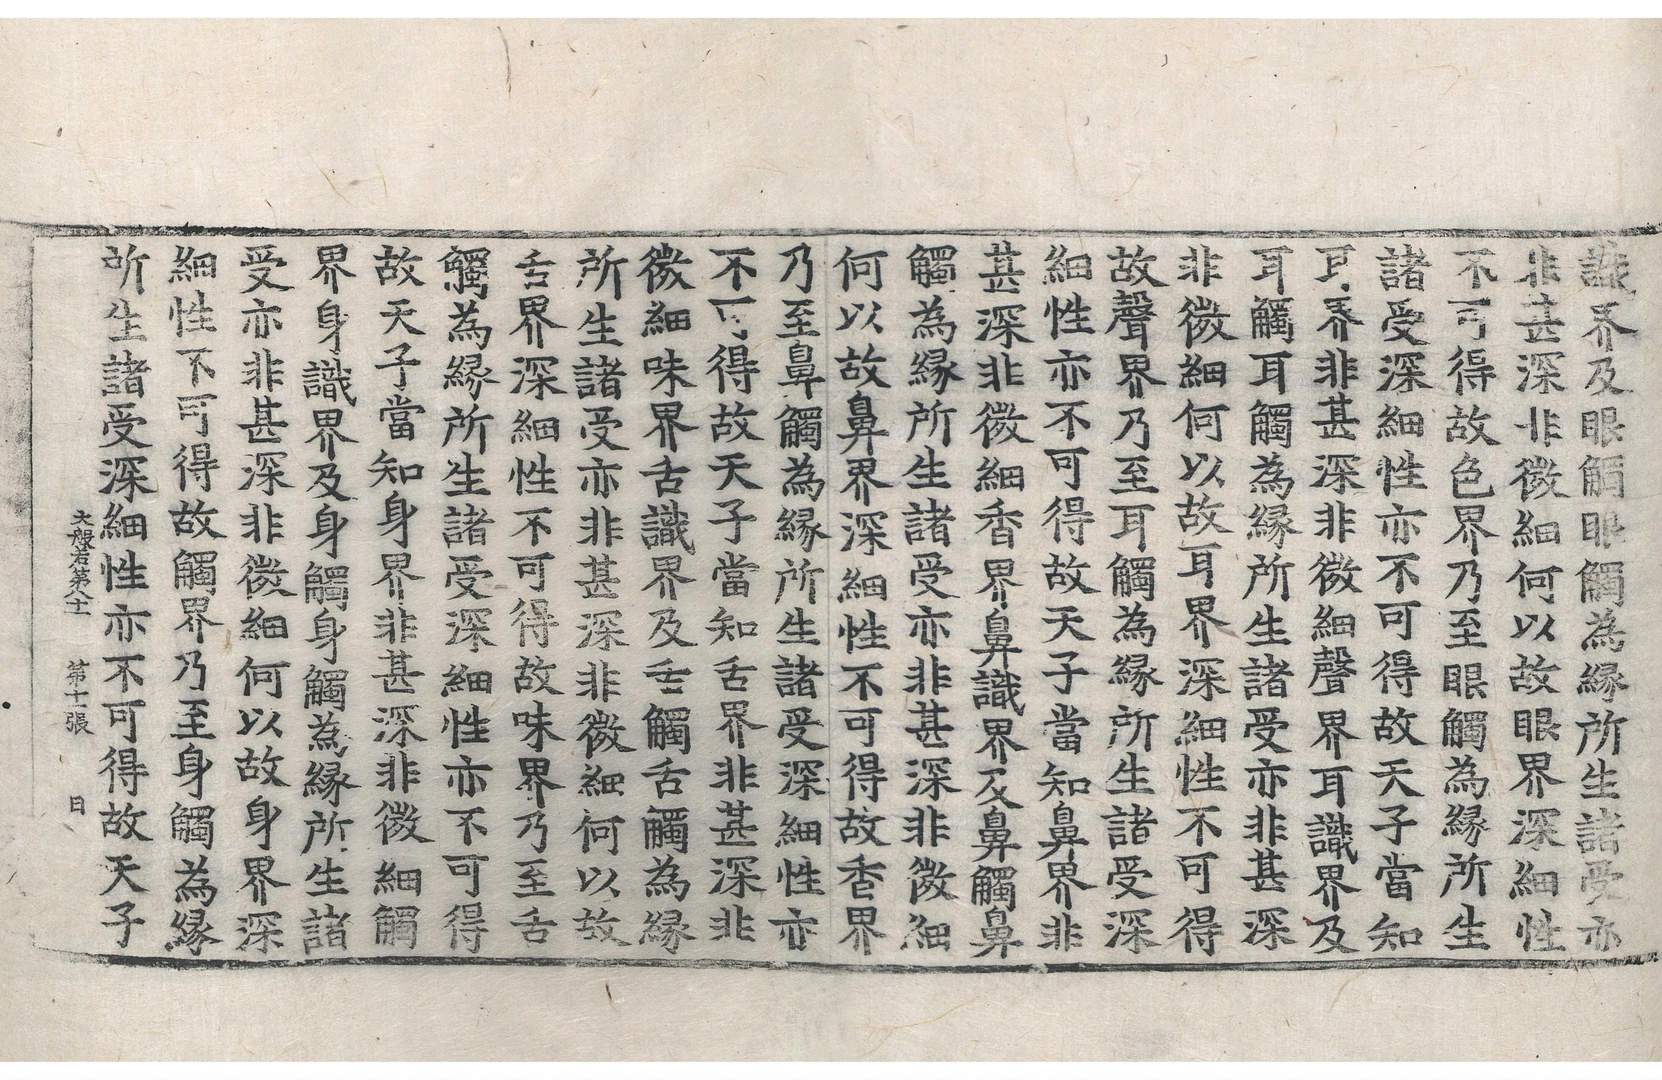 識界及眼觸眼觸為縁所生諸受亦
非甚深非微細何以故眼界深細性
不可得故色界乃至眼觸為縁所生
諸受深細性亦不可得故天子當知
耳界非甚深非微細聲界耳識界及
耳觸耳觸為縁所生諸受亦非甚深
非微細何以故耳界深細性不可得
故聲界乃至耳觸為縁所生諸受深
細性亦不可得故天子當知鼻界非
甚深非微細香界鼻識界及鼻觸鼻
觸為縁所生諸受亦非甚深非微細
何以故鼻界深細性不可得故香界
乃至鼻觸為縁所生諸受深細性亦
不可得故天子當知舌界非甚深非
微細味界舌識界及舌觸舌觸為縁
所生諸受亦非甚深非微細何以故
舌界深細性不可得故味界乃至舌
觸為縁所生諸受深細性亦不可得
故天子當知身界非甚深非微細觸
界身識界及身觸身觸為縁所生諸
受亦非甚深非微細何以故身界深
細性不可得故觸界乃至身觸為縁
所生諸受深細性亦不可得故天子
大般若第八十一 第十一張 日